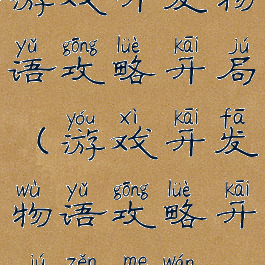 游戏开发物
yǔ gōng lüè kāi jú
语攻略开局
yóu xì kāi fā
（游戏开发
wù yǔ gōng lüè kāi
物语攻略开
jú zěn me wán